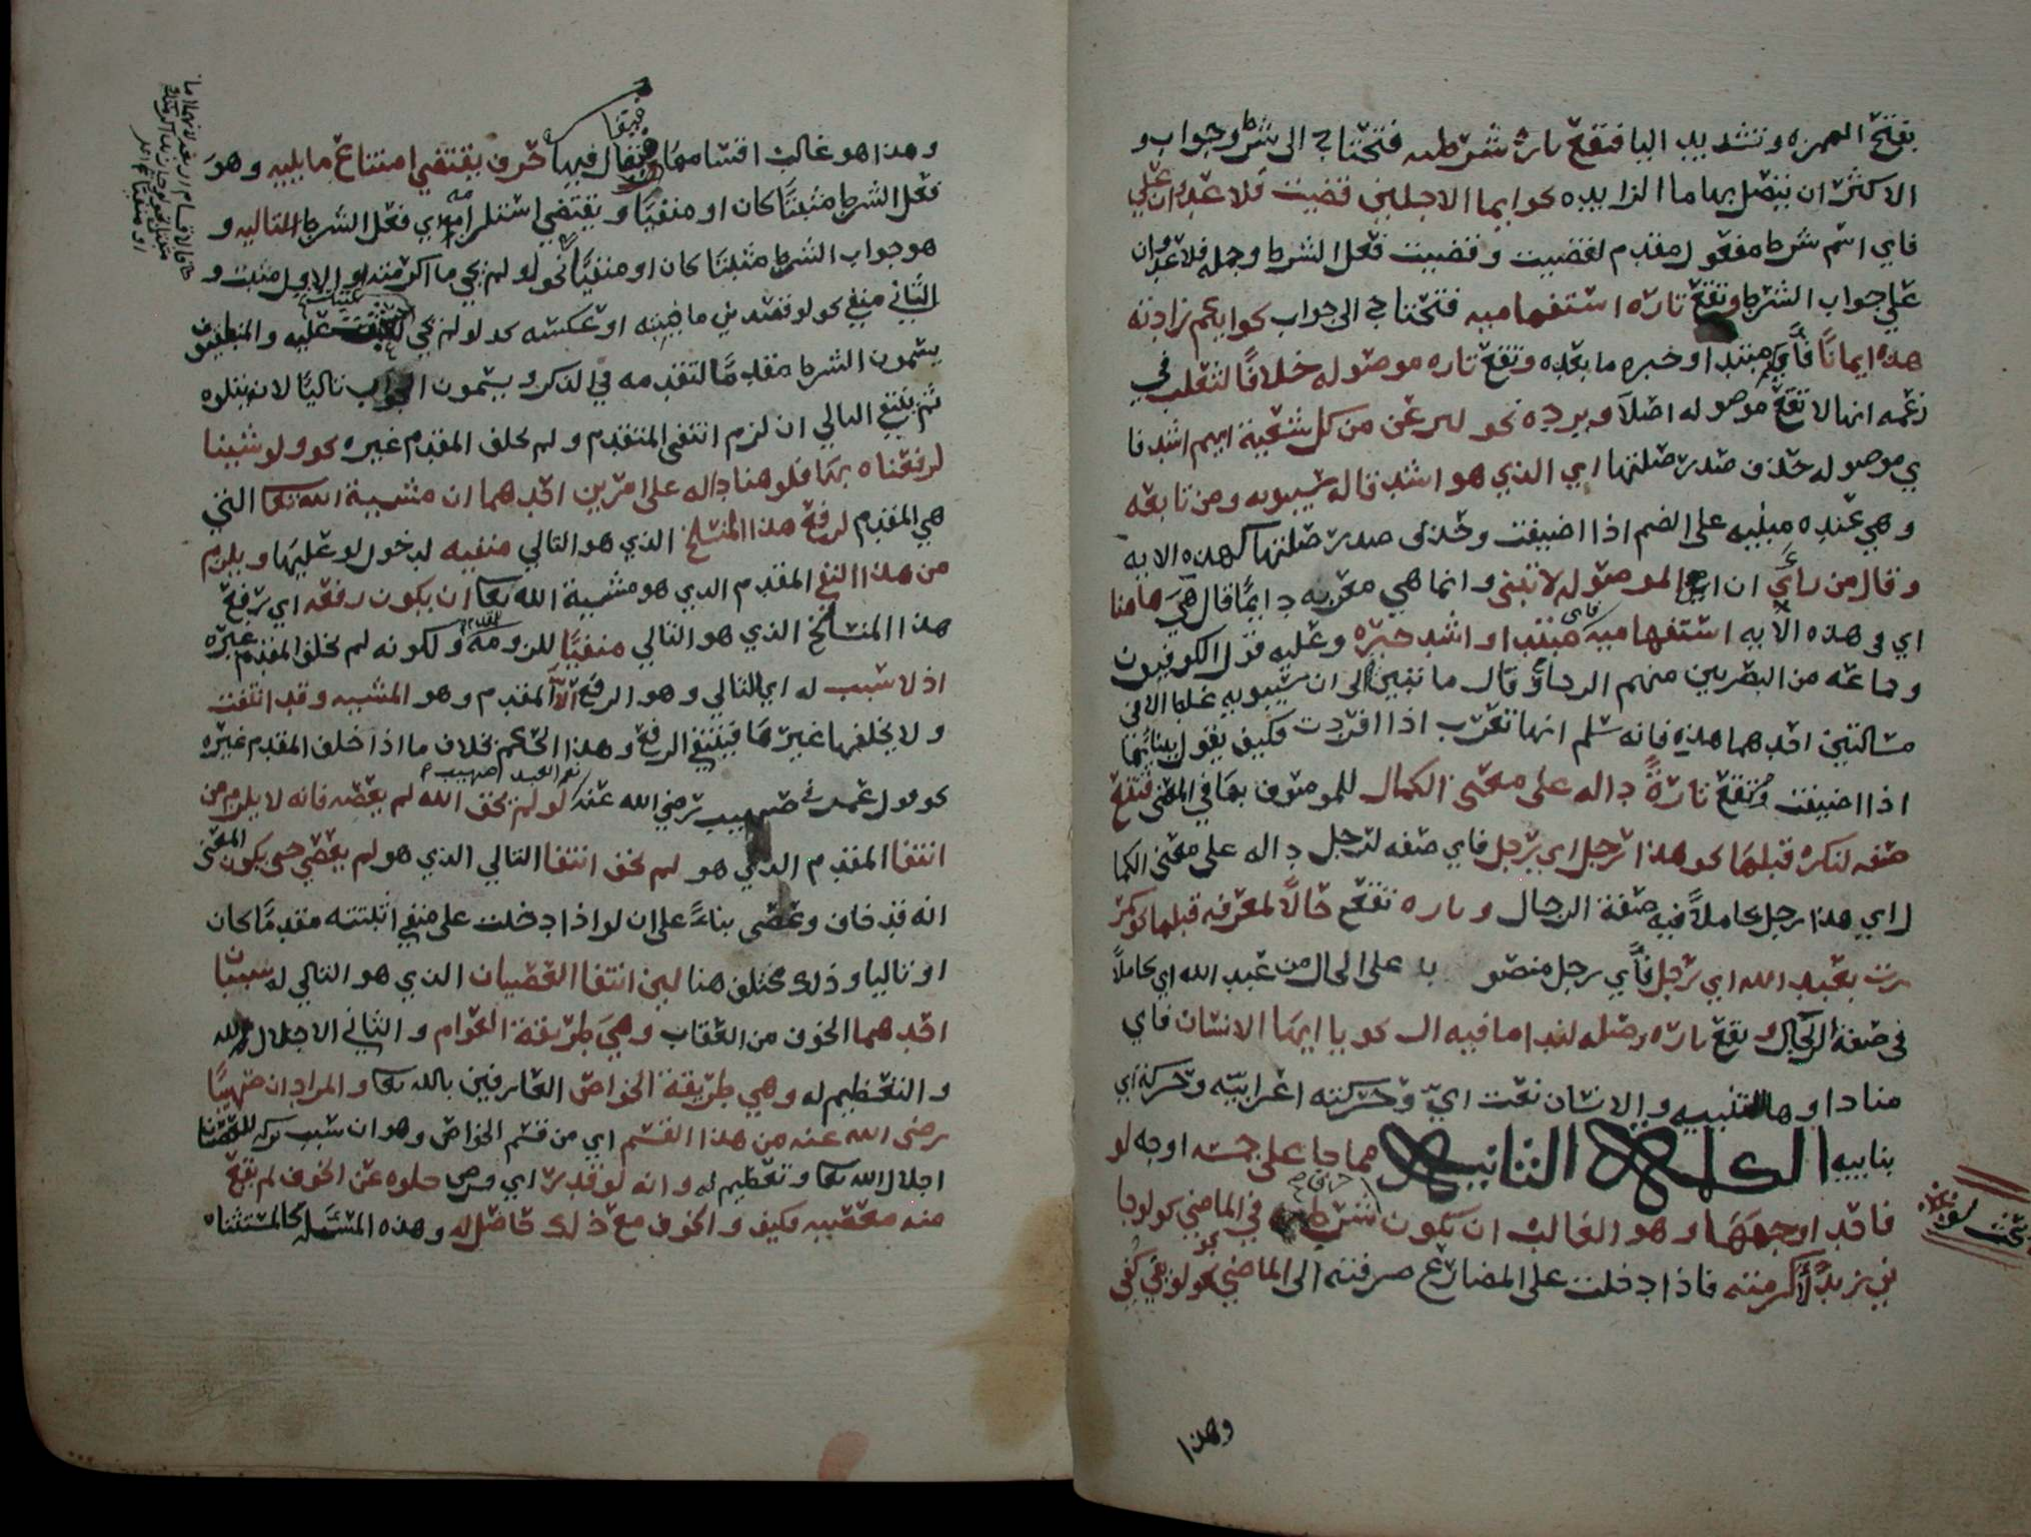 بفتح الهمزه وتشديد اليا فتقع تارة شرطيه فتحتاج الى شرط وجواب و
الاكثر ان يتصل بها ما الزايده نحو ايما الاجلين قضيت فلا عدوان علي
فاي اسم شرط مفعول مقدم لقضيت وقضيت فعل الشرط وجمله فلا عدوان
علي جواب الشرط وتقع تاره استفهاميه فتحتاج الى جواب نحو ايكم زادته
هذه ايمانًا فأي مبتدا وخبره ما بعده وتقع تاره موصوله خلافًا لثعلب في
زعمه انها لا تقع موصوله اصلاً ويرده نحو لننزعن من كل شيعة ايهم اشد فا
ي موصوله حذف صدر صلتها اي الذي هو اشد قاله سيبويه ومن تابعه
وهي عنده مبنيه على الضم اذا اضيفت وحذف صدر صلتها كهذه الايه
وقال من راي ان ايا الموصوله لا تبنى وانما هي معربه دايمًا قال هي هاهنا
اي في هذه الايه استفهاميه فاي مبتدا واشد خبره وعليه قول الكوفيون
وجماعه من البصريين منهم الزجاج وقال ما تبين لي ان سيبويه غلط الا في
مسالتين احدهما هذه فانه سلم انها تعرب اذا افردت فكيف يقول ببنائها
اذا اضيفت وتقع تارةً داله على معنى الكمال للموصوف بها في المعنى فتقع
صفه لنكره قبلها نحو هذا رجل اي رجل فاي صفه لرجل داله على معنى الكما
ل اي هذا رجل كاملاً فيه صفة الرجال وتاره تقع حالاً لمعرفه قبلها نحو مر
رت بعبد الله اي رجل فأي رجل منصو با على الحال من عبد الله اي كاملاً
في صفة الرجال وتقع تاره وصله لندا ما فيه ال نحو يا ايها الانسان فاي
منادا وها للتنبيه والانسان نعت اي وحركته اعرابيه وحركة اي
بنابيه الكلمة الثانيه مما جا على خمسه اوجه لو
فاحد اوجهها وهو الغالب ان تكون حرف شرط في الماضي نحو لو جا
ني زيدٌ لأكرمته فاذا دخلت على المضارع صرفته الى الماضي نحو لو يفي كفي
بحث لو
وهذا
وهذا هو غالب اقسامها فيقال فيها حرف يقتضي امتناع ما يليه وهو
فعل الشرط مثبتًا كان او منفيًا ويقتضي استلزامه اي فعل الشرط لتاليه و
هو جواب الشرط مثبتًا كان او منفيًا نحو لو لم يجي ما اكرمته او الاول مثبت و
الثاني منفي نحو لو قصدني ما خيبته او عكسه نحو لو لم يجي عتبت عليه والمنطقيون
يسمون الشرط مقدمًا لتقدمه في الذكر ويسمون الجواب تاليًا لانه يتلوه
ثم ينتفي التالي ان لزم انتفى المتقدم ولم يخلف المقدم غيره نحو ولو شينا
لرفعناه بها فلو هنا داله على امرين احدهما ان مشية الله تعا التي
هي المقدم لرفع هذا المنسلخ الذي هو التالي منفيه لدخول لو عليها ويلزم
من هذا النفي المقدم الذي هو مشية الله تعا ان يكون رفعه اي رفع
هذا المنسلخ الذي هو التالي منفيًا للزومه ولكونه لم يخلف المقدم غيره
اذ لا سبب له اي للتالي وهو الرفع الا المقدم وهو المشيه وقد انتفت
ولا يخلفها غيرها فينتفي الرفع وهذا الحكم بخلاف ما اذا خلف المقدم غيره
نحو قول عمر في صهيب رضي الله عنه نعم العبد صهيب لو لم يخف الله لم يعصه فانه لا يلزم من
انتفا المقدم الذي هو لم يخف انتفا التالي الذي هو لم يعصي حتى يكون المعنى
انه قد خاف وعصى بناءً على ان لو اذا دخلت على منفي اثبتته مقدمًا كان
او تاليا وذلك مختلف هنا لان انتفا العصيان الذي هو التالي له سببان
احدهما الخوف من العقاب وهي طريقة العوام والثاني الاجلال لله
والتعظيم له وهي طريقة الخواص العارفين بالله تعا والمراد ان صهيبًا
رضي الله عنه من هذا القسم اي من قسم الخواص وهو ان سبب تركه للعصيان
اجلال الله تعا وتعظيم له وانه لو قدر اي فرض خلوه عن الخوف لم تقع
منه معصيه فكيف والخوف مع ذلك حاصل له وهذه المسئله كالمستثناه